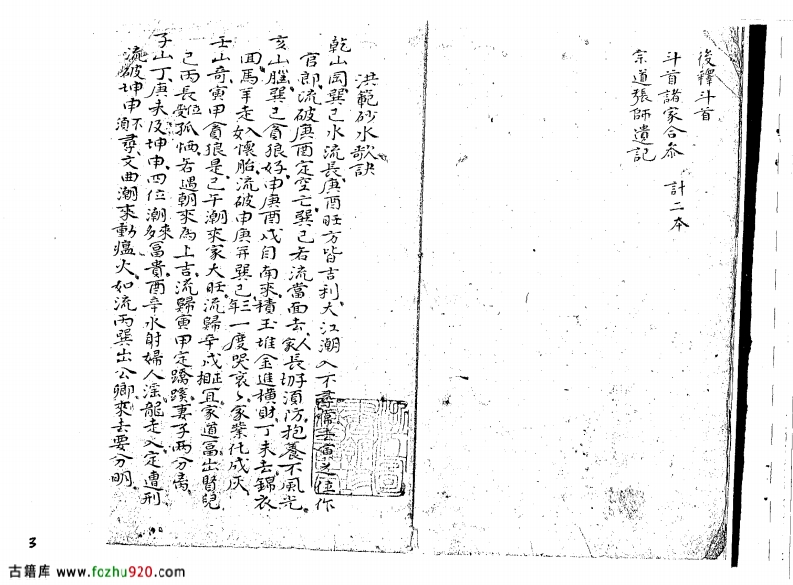 後釋斗首
斗首諸家合參　計二本
宗道張師遺記
洪範砂水歌訣
乾山岡巽巳水流長庚酉旺方皆吉利大江潮入不尋常去寅之位作
官郎流破庚酉定空亡巽巳若流當面去人家長切子須防抱養不風光
亥山騰巽巳貪狼好申庚酉戌自南來積玉堆金進橫財丁未去錦衣
回馬羊走如入懷胎流破申庚并巽巳三年一度哭哀哀家業化成灰
壬山奇寅甲貪狼是巳午潮來家大旺流歸辛戌相正宜家道富出賢兒
巳丙長位受孤恓若遇朝來為上吉流歸寅甲定蹺蹊妻子兩分离
子山丁庚未及坤申四位潮來多富貴酉辛水射婦人淫龍走入定遭刑
流破坤申不須尋文曲潮來動瘟火如流丙巽出公卿來去要分明
3
古籍库 www.fozhu920.com